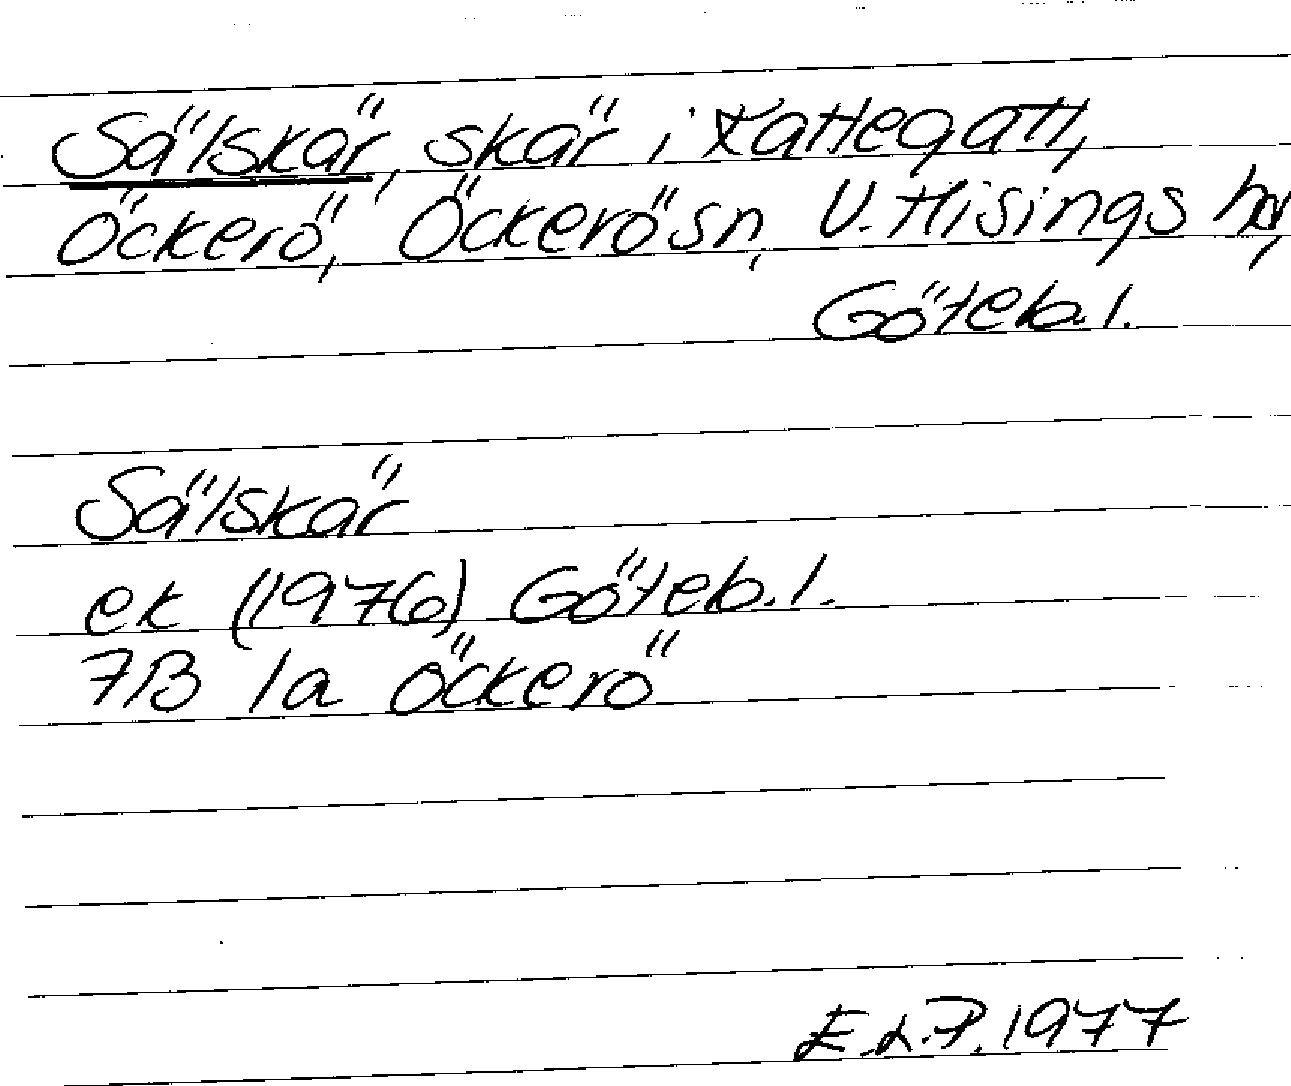 Sälskär, skär i Kattegatt,
Öckerö, Öckerö sn, V. Hisings hd,
Göteb. l.
Sälskär
ek (1976) Göteb. l.
7B 1a Öckerö
E.L.P. 1977